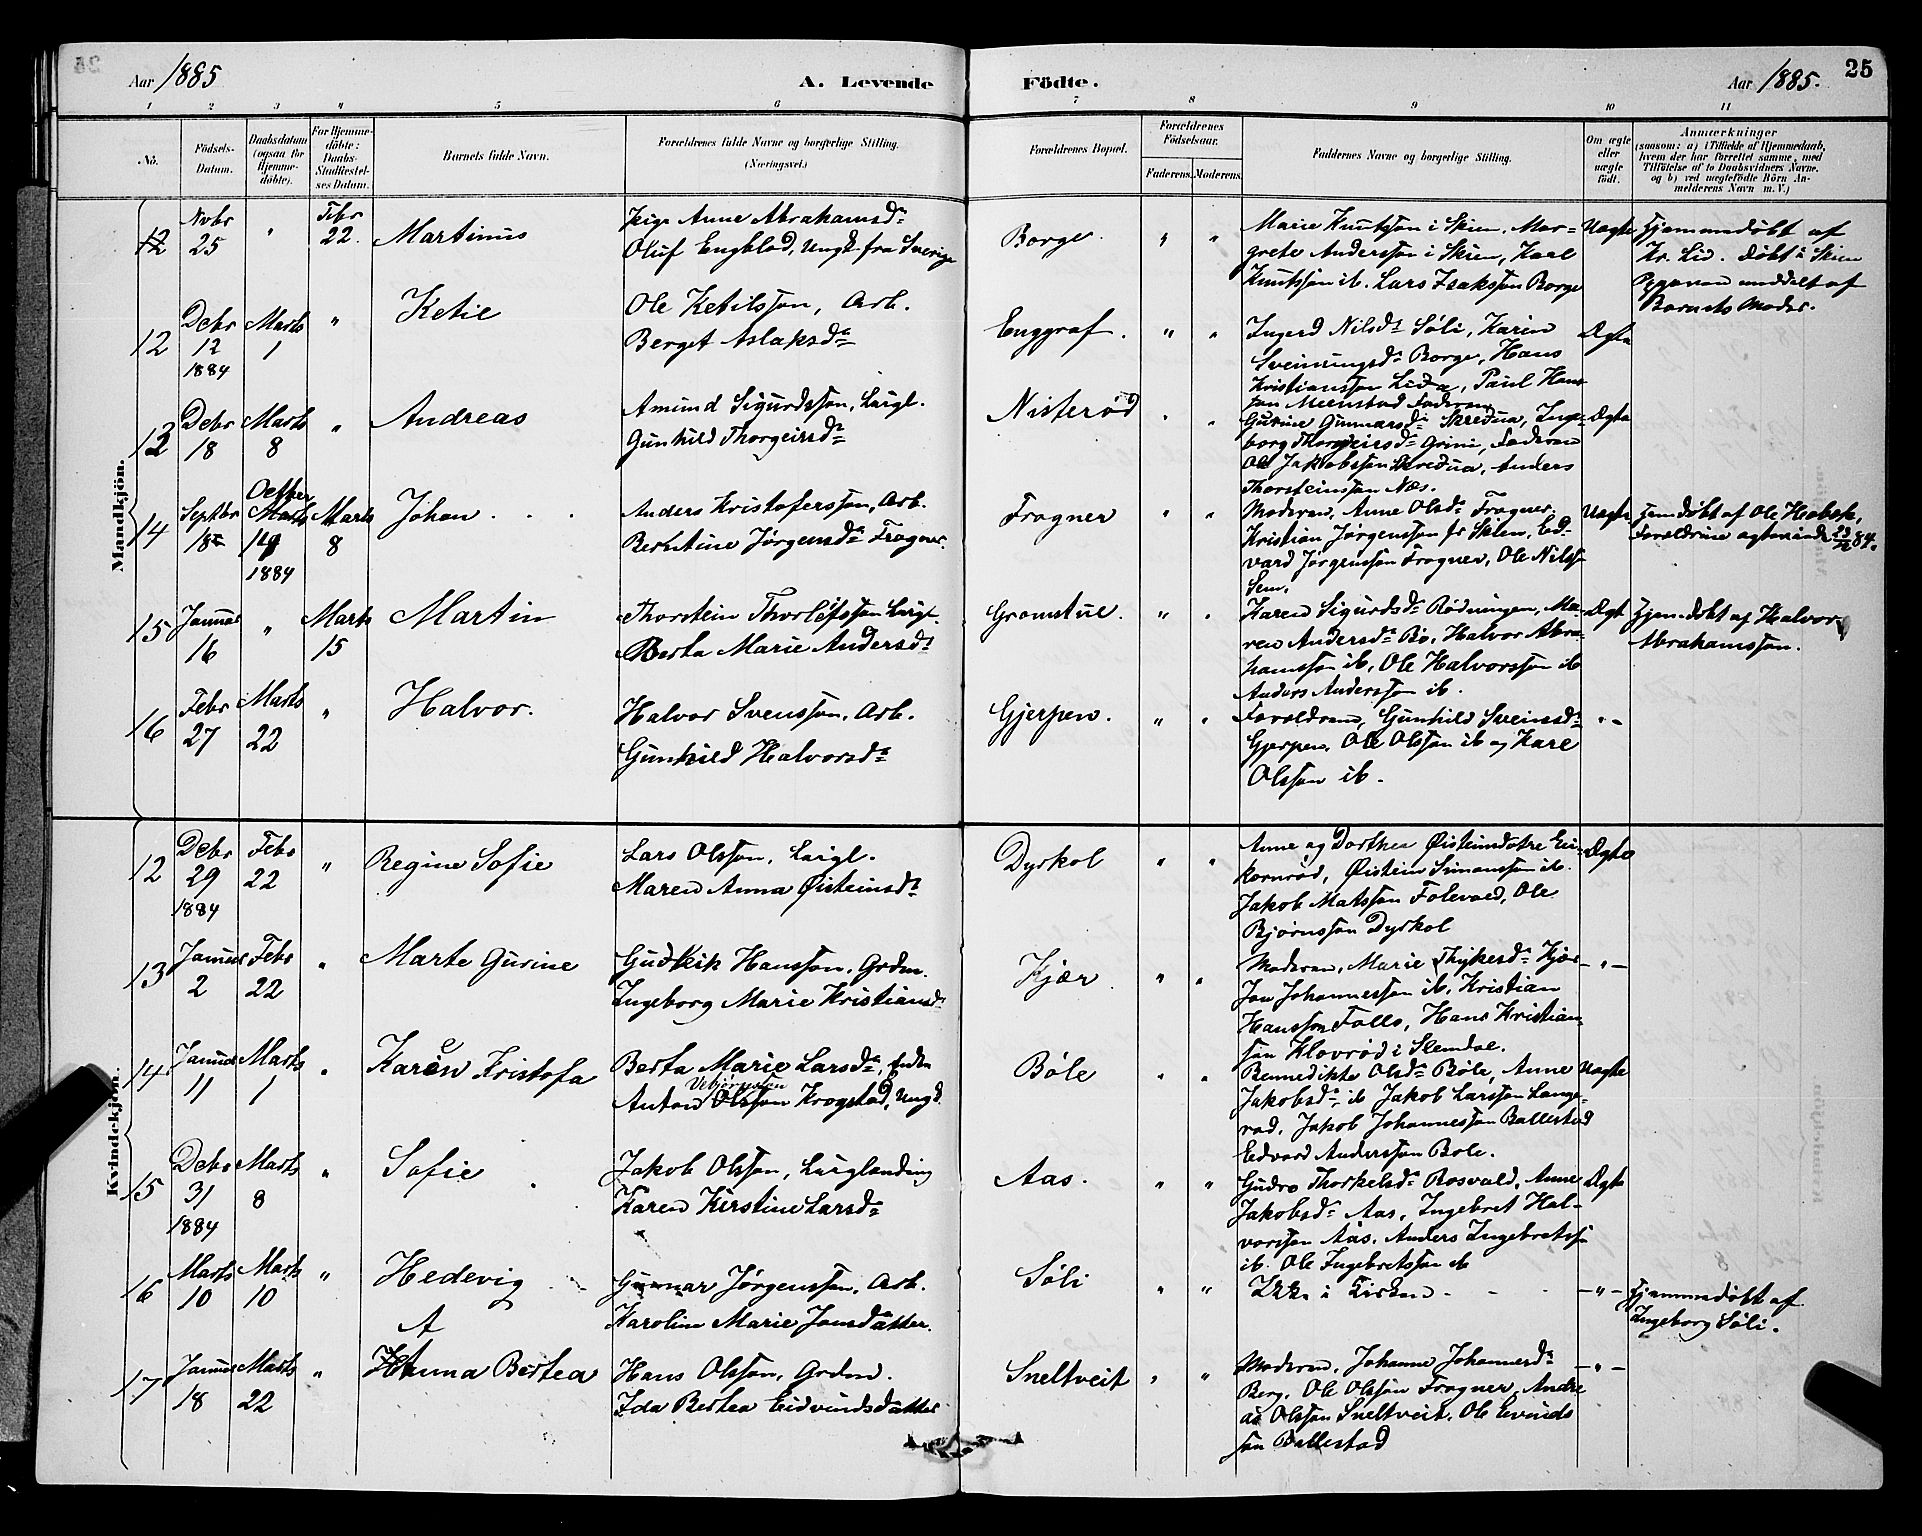 Aar 1885 A. Levende Födte. Aar 1885. 25
1 2 3 4 5 6 7 8 9 10 11
No. Födsels-Datum. Daabsdatum (ogsaa for Hjemme-döbte). For Hjemme-döbte: Daabs-Stadfæstel-ses Datum. Barnets fulde Navn. Forældrenes fulde Navne og borgerlige Stilling. (Næringsvei.) Forældrenes Bopæl. Forældrenes Födselsaar. Faderens. Moderens. Faddernes Navne og borgerlige Stilling. Om ægte eller uægte födt. Anmærkninger
(saasom: a) i Tilfælde af Hjemmedaab,
hvem der har forrettet samme, med
Tilföielse af to Daabsvidners Navne,
og b) ved uægtefödte Börn An-
melderens Navn m. V.)
Mandkjön.
12 Novbr 25 " Febr 22. Martinus
Pige Anne Abrahamsdr
Oluf Engblad, Ungk. fra Sverige
Borge " "
Marie Knutsson i Skien, Mar-
grete Andersson i Skien, Karl
Knutsson ib. Lars Isaksson Borge
Uægte
Hjemmedøbt af
Kr. Lid. døbt i Skien
meddelt af
Barnets Moder.
12 Debr 12 1884 Marts 1 " Ketil
Ole Ketilsson, Arb.
Berget Aslaksdr
Enggraf. " "
Ingerd Nilsdr Søli, Karen
Sveinungsdr Borge, Hans
Kristiansson Lida, Paul Hans
son Meenstad Faderen
Ægte
13 Debr 18 Marts 8 " Andreas
Amund Sigurdsson, Leigl.
Gunhild Thorgeirsdr
Nisterød " "
Gurine Gunnarsdr Skredua, Inge-
borg Thorgeirsdr Grini, Faderen
Ole Jakobsson Skredua, Anders
Thorsteinsson Næs.
Ægte
14 Septbr 18 Octber 19 1884 Marts 8 Johan
Anders Kristofersson, Arb.
Berntine Jørgensdr Frogner.
Frogner " "
Moderen, Anne Olsdr Frogner,
Kristian Jørgensson fr Skien, Ed-
vard Jørgensson Frogner, Ole Nilss.
Sem.
Uægte
Hjemdøbt af Ole Habek,
Forældrene ægtevied 23/12 84.
15 Januar 16 " Marts 15 Martin
Thorstein Thorleifsson Leigl.
Berta Marie Andersdr
Gromstul. " "
Karen Sigurdsdr Rødningen, Ma-
ren Andersdr Bø, Halvor Abra-
hamsson ib, Ole Halvorsson ib
Anders Andersson ib.
Ægte
Hjemdøbt af Halvor
Abrahamsson.
16 Febr 27 Marts 22 " Halvor.
Halvor Svensson, Arb.
Gunhild Halvorsdr
Gjerpen. " "
Forældrene, Gunhild Sveinsdr
Gjerpen, Ole Olsson ib og Karl
Olsson ib.
-"-
Kvindekjön.
12 Debr 29 1884 Febr 22 " Regine Sofie
Lars Olsson, Leigl.
Maren Anna Øisteinsdr
Dyrkol " "
Anne og Dorthea Øisteinsdøtre Ei-
kornrød, Øistein Simonsson ib.
Jakob Matsson Folevald, Ole
Bjørnsson Dyrkol
Ægte
13 Januar 2 Febr 22 " Marte Gurine
Gudleik Hansson, Grdm.
Ingeborg Marie Kristiansdr
Kjær " "
Moderen, Marie Thykesdr Kjær
Jon Johannesson ib, Kristian
Hansson Falls, Hans Kristian
son Klovrød i Slemdal.
-"-
14 Januar 11 Marts 1 " Karen Kristofa
Berta Marie Larsdr, Enke
Vebjørnsson
Anton Olsson Krogstad, Ungk.
Bøle " "
Bennedikte Olsdr Bøle, Anne
Jakobsdr ib Jakob Larsson Lange-
rød, Jakob Johannesson Ballestad
Edvard Andersson Bøle.
Uægte
15 Debr 31 1884 Marts 8 " Sofie
Jakob Olsson, Leiglending
Karen Kirstine Larsdr
Aas. " "
Gudro Thorkelsdr Rosvald, Anne
Jakobsdr Aas, Ingebret Hal-
vorsson Aas, Anders Ingebretss
ib. Ole Ingebretsson ib
Ægte
16 Marts 10 Marts 10 " Hedevig
Gunnar Jørgensson, Arb.
Karoline Marie Jonsdatter.
Søli " "
Ikke i Kirken
-"-
Hjemmedøbt af
Ingeborg Søli.
17 Januar 18 Marts 22 " Anna Bertea
Hans Olsson, Grdm.
Ida Bertea Eidvindsdatter
Sneltveit " "
Moderen, Johanne Johannesdr
Berg, Ole Olsson Frogner, Andre
as Olsson Sneltveit, Ole Evinds
son Ballestad
-"-